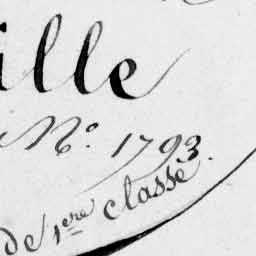 ille
N.º 1793.
de 1ere classe